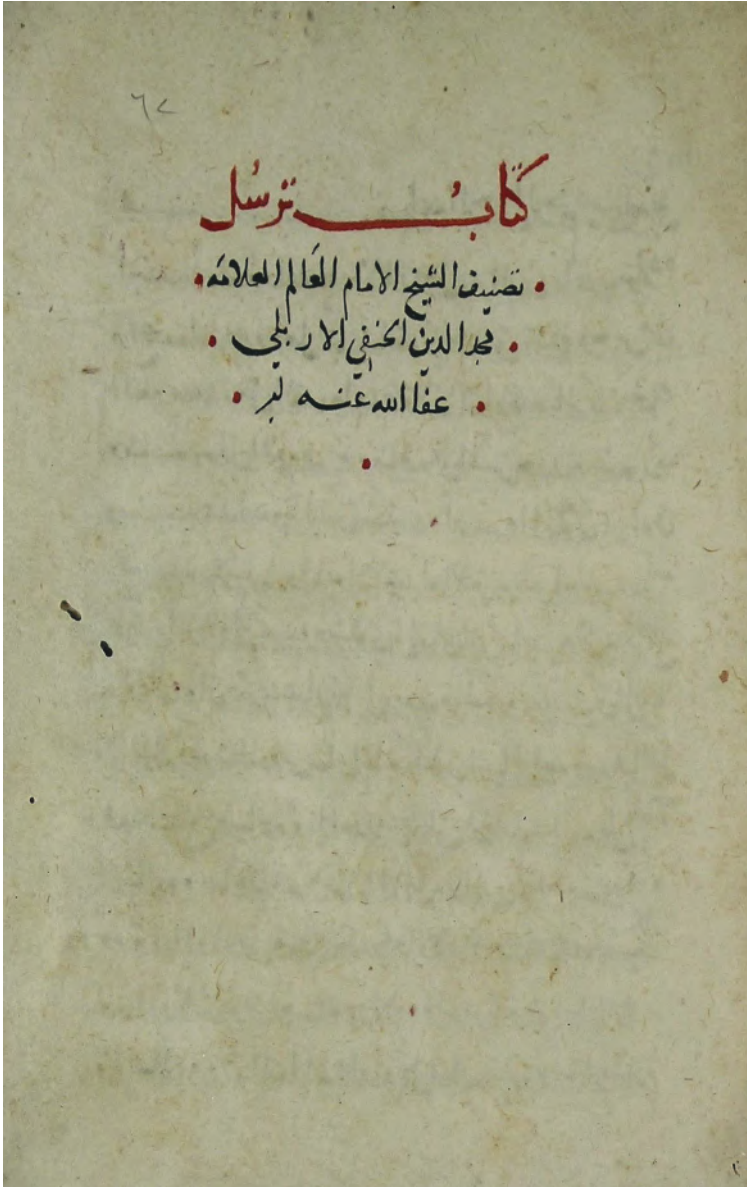 ٦٢
كتابُ ترسُل
تصنيف الشيخ الامام العَالم العلامه
مجد الدين الحنفي الاربلي
عفا الله عنه